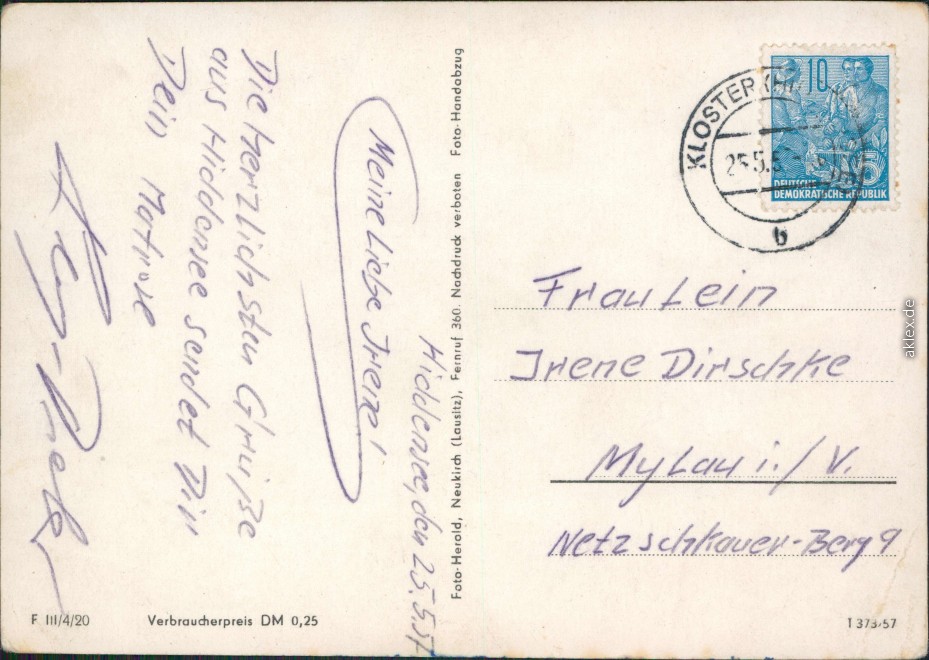 Hiddensee, den 25.5.57
Meine liebe Irene!
Die herzlichsten Grüße
aus Hiddensee sendet Dir
Dein Matrose
Foto-Herold, Neukirch (Lausitz), Fernruf 360. Nachdruck verboten Foto-Handabzug
F III/4/20
Verbraucherpreis DM 0,25
KLOSTER (HI
25.5.5
b
10
5
DEUTSCHE
DEMOKRATISCHE REPUBLIK
Fraulein
Irene Dirschke
Mylau i./V.
Netzschkauer-Berg 9
1 373/57
aklex.de